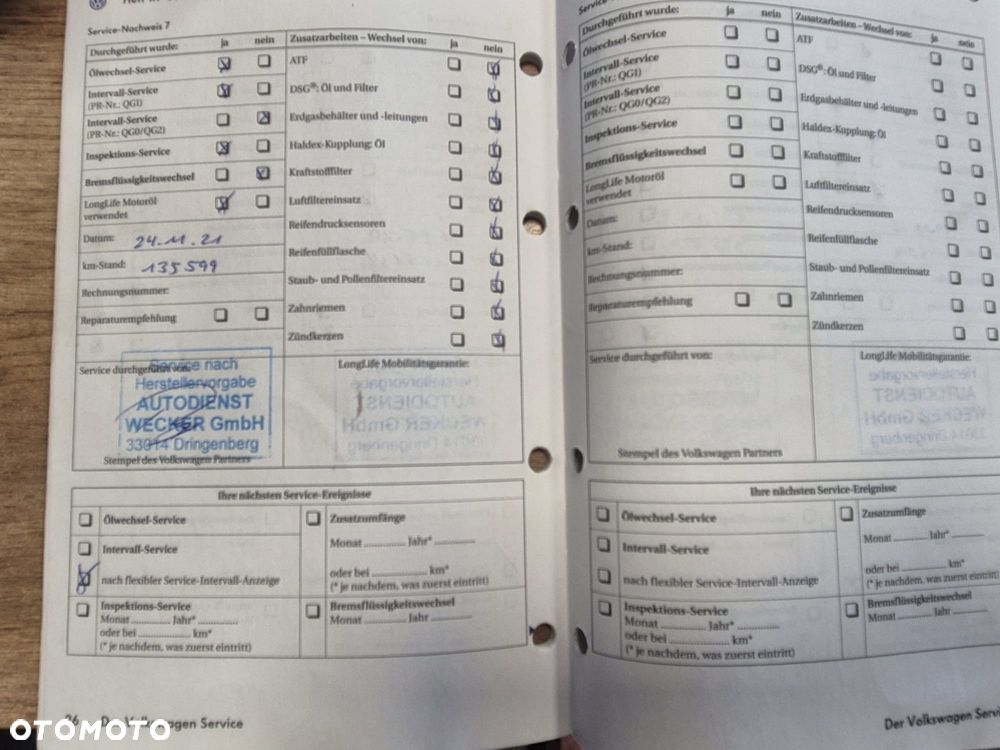 Service-Nachweis 7
Durchgeführt wurde: ja nein
Ölwechsel-Service
Intervall-Service
(PR-Nr.: QG1)
Intervall-Service
(PR-Nr.: QG0/QG2)
Inspektions-Service
Bremsflüssigkeitswechsel
LongLife Motoröl
verwendet
Datum: 24.11.21
km-Stand: 135599
Rechnungsnummer:
Reparaturempfehlung
Service durchgeführt von:
Service nach
Herstellervorgabe
AUTODIENST
WECKER GmbH
33014 Dringenberg
Stempel des Volkswagen Partners
Zusatzarbeiten – Wechsel von: ja nein
ATF
DSG®: Öl und Filter
Erdgasbehälter und -leitungen
Haldex-Kupplung: Öl
Kraftstofffilter
Luftfiltereinsatz
Reifendrucksensoren
Reifenfüllflasche
Staub- und Pollenfiltereinsatz
Zahnriemen
Zündkerzen
LongLife Mobilitätsgarantie:
Ihre nächsten Service-Ereignisse
Ölwechsel-Service
Intervall-Service
nach flexibler Service-Intervall-Anzeige
Inspektions-Service
Monat ............ Jahr* ............
oder bei ............ km*
(* je nachdem, was zuerst eintritt)
Zusatzumfänge
Monat ............ Jahr* ............
oder bei ............ km*
(* je nachdem, was zuerst eintritt)
Bremsflüssigkeitswechsel
Monat ............ Jahr ............
Der Volkswagen Service
Durchgeführt wurde: ja nein
Ölwechsel-Service
Intervall-Service
(PR-Nr.: QG1)
Intervall-Service
(PR-Nr.: QG0/QG2)
Inspektions-Service
Bremsflüssigkeitswechsel
LongLife Motoröl
verwendet
Datum:
km-Stand:
Rechnungsnummer:
Reparaturempfehlung
Service durchgeführt von:
Stempel des Volkswagen Partners
Zusatzarbeiten – Wechsel von: ja nein
ATF
DSG®: Öl und Filter
Erdgasbehälter und -leitungen
Haldex-Kupplung: Öl
Kraftstofffilter
Luftfiltereinsatz
Reifendrucksensoren
Reifenfüllflasche
Staub- und Pollenfiltereinsatz
Zahnriemen
Zündkerzen
LongLife Mobilitätsgarantie:
Ihre nächsten Service-Ereignisse
Ölwechsel-Service
Intervall-Service
nach flexibler Service-Intervall-Anzeige
Inspektions-Service
Monat ............ Jahr* ............
oder bei ............ km*
(* je nachdem, was zuerst eintritt)
Zusatzumfänge
Monat ............ Jahr* ............
oder bei ............ km*
(* je nachdem, was zuerst eintritt)
Bremsflüssigkeitswechsel
Monat ............ Jahr ............
Der Volkswagen Servi
OTOMOTO